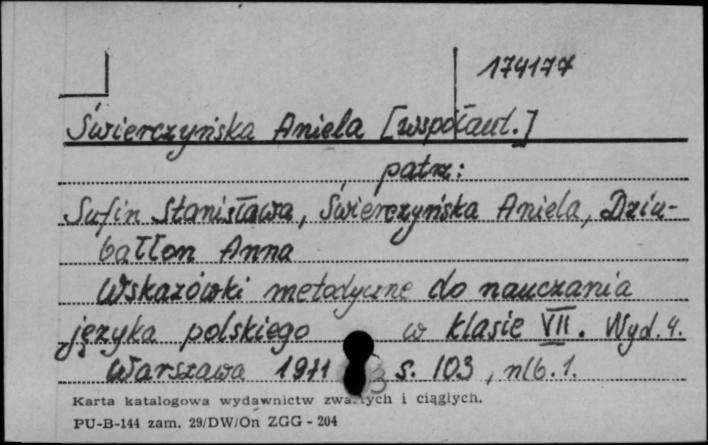 174177
Świerczyńska Aniela [współaut.]
patrz:
Sufin Stanisława, Świerczyńska Aniela, Dziu-
bałłon Anna
Wskazówki metodyczne do nauczania
języka polskiego w klasie VII. Wyd. 4.
Warszawa 1971 s. 103, nlb. 1.
Karta katalogowa wydawnictw zwartych i ciągłych.
PU-B-144 zam. 29/DW/On ZGG - 204